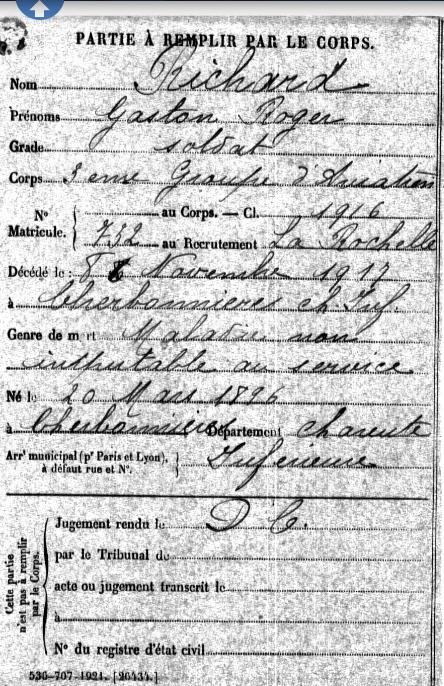 PARTIE À REMPLIR PAR LE CORPS.
Nom Richard
Prénoms Gaston Roger
Grade soldat
Corps 3eme Groupe d'Aviation
N° Matricule. au Corps. — Cl. 1916
732 au Recrutement La Rochelle
Décédé le : 8 Novembre 1917
à Cherbonnieres ch. Inf.
Genre de mort Maladie non
imputable au service
Né le 20 Mars 1896
à Cherbonnières Département Charente
Arrt municipal (pr Paris et Lyon), à défaut rue et N°. Inferieure
Jugement rendu le D C.
par le Tribunal de
acte ou jugement transcrit le
à
N° du registre d'état civil
Cette partie n'est pas à remplir par le Corps.
530-707-1921. [26434.]